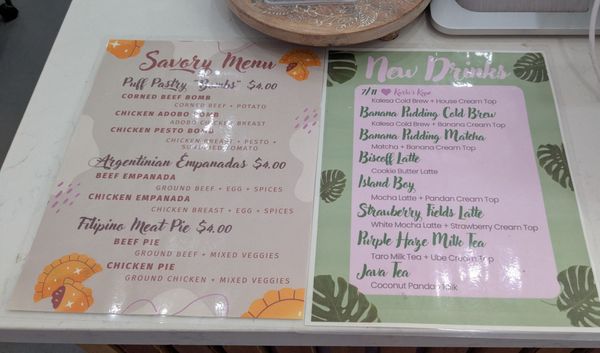 Savory Menu
Puff Pastry "Bombs" $4.00
CORNED BEEF BOMB
CORNED BEEF + POTATO
CHICKEN ADOBO BOMB
ADOBO CHICKEN BREAST
CHICKEN PESTO BOMB
CHICKEN BREAST + PESTO +
SUNDRIED TOMATO
Argentinian Empanadas $4.00
BEEF EMPANADA
GROUND BEEF + EGG + SPICES
CHICKEN EMPANADA
CHICKEN BREAST + EGG + SPICES
Filipino Meat Pie $4.00
BEEF PIE
GROUND BEEF + MIXED VEGGIES
CHICKEN PIE
GROUND CHICKEN + MIXED VEGGIES
New Drinks
7/11
Kalesa Cold Brew + House Cream Top
Banana Pudding Cold Brew
Kalesa Cold Brew + Banana Cream Top
Banana Pudding Matcha
Matcha + Banana Cream Top
Biscoff Latte
Cookie Butter Latte
Island Boy
Mocha Latte + Pandan Cream Top
Strawberry Fields Latte
White Mocha Latte + Strawberry Cream Top
Purple Haze Milk Tea
Taro Milk Tea + Ube Cream Top
Java Tea
Coconut Pandan Milk